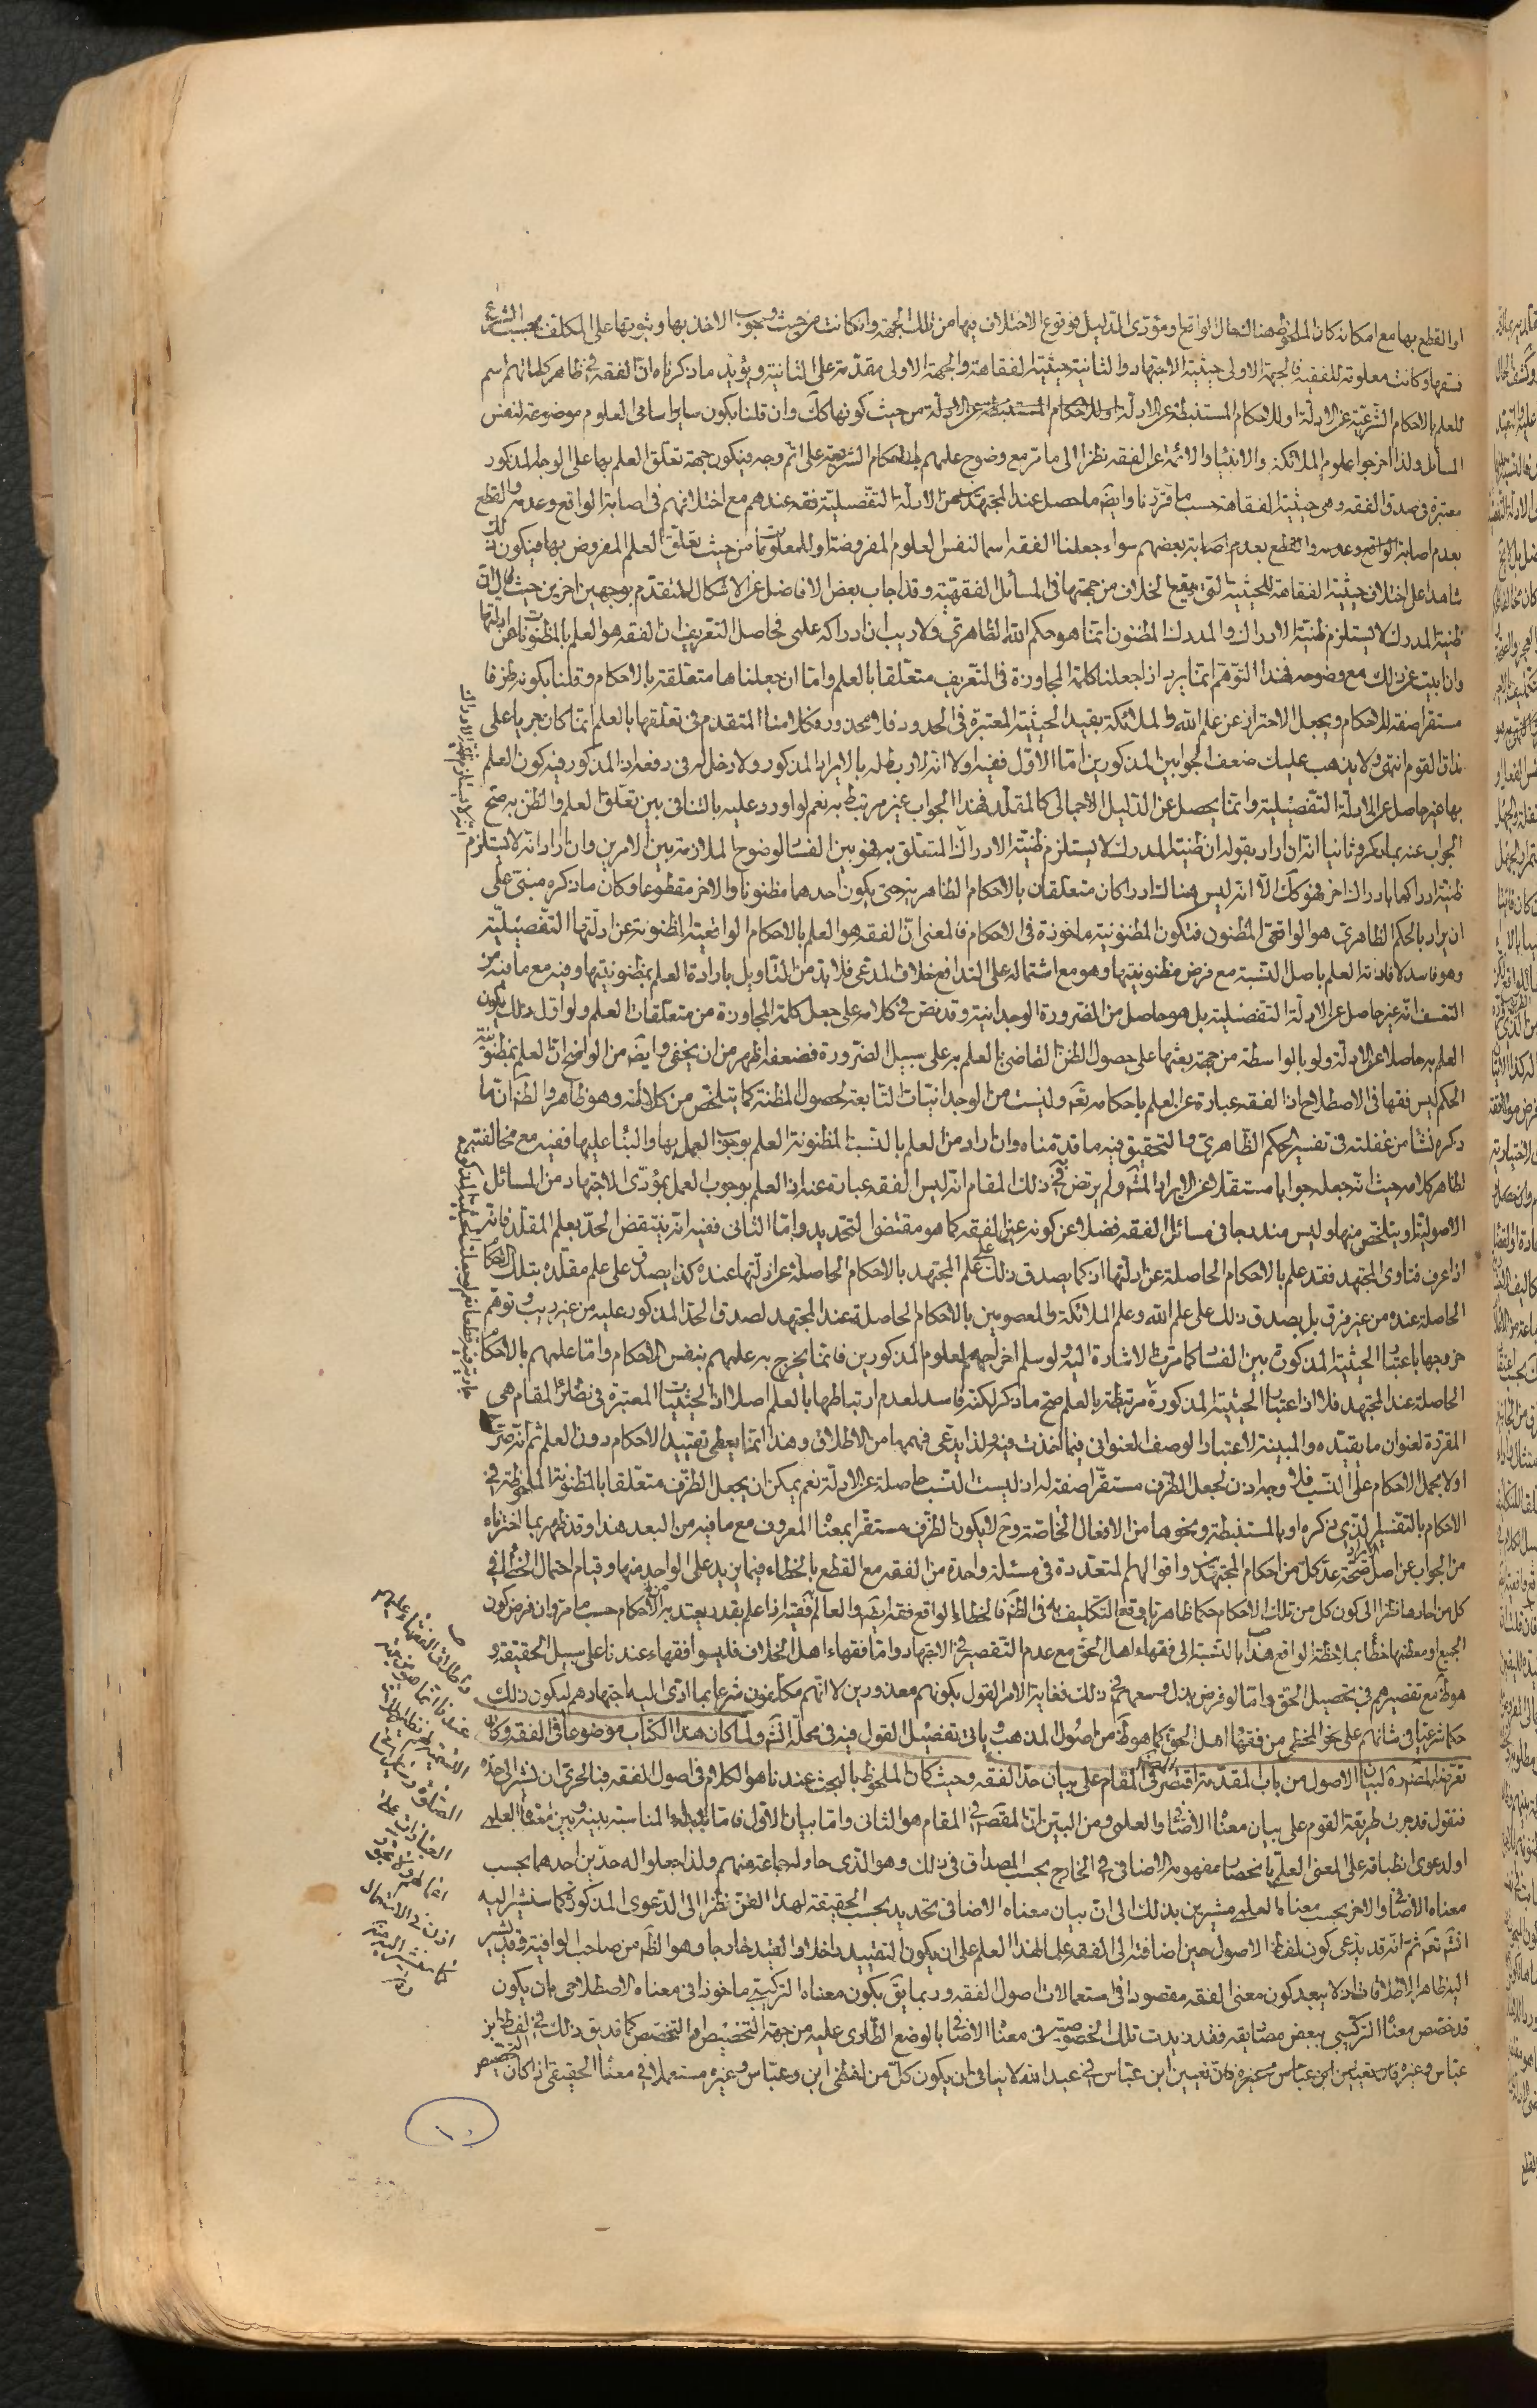 او القطع بها مع امكانه كان الملحوظ هناك الحال الواقع ومؤدى الدليل هو وقوع الاختلاف فيها من تلك الجهة وان كانت من حيث وجوب الاخذ بها وثبوتها على المكلف بحسب الشرع
فقها وكانت معلومة للفقيه فالجهة الاولى حيثية الاجتهاد والثانية حيثية الفقاهة والجهة الاولى مقدمة على الثانية ويؤيد ما ذكرناه ان الفقه في ظاهر كلماتهم اسم
للعلم بالاحكام الشرعية عن الادلة او للاحكام المستنبطة عن الادلة من حيث كونها كك وان قلنا بكون ساير اسامي العلوم موضوعة لنفس
المسائل ولذا اخرجوا علوم الملائكة والانبياء والائمة عن الفقه نظرا الى ما مر مع وضوح علمهم بالاحكام الشرعية على اتم وجه فيكون جهة تعلق العلم بها على الوجه المذكور
معتبرة في صدق الفقه وهي حيثية الفقاهة حسب ما قررنا وايضا ما حصل عند المجتهدين من الادلة التفصيلية فقه عندهم مع اختلافهم في اصابة الواقع وعدمه والقطع
بعدم اصابة بعضهم سواء جعلنا الفقه اسما لنفس العلوم المفروضة او للمعلومات من حيث تعلق العلم المفروض بها فيكون ذلك
شاهدا على اختلاف حيثية الفقاهة للحيثية التي يقع الخلاف من جهتها في المسائل الفقهية وقد اجاب بعض الافاضل عن الاشكال المتقدم بوجهين اخرين حيث قال ان
ظنية المدرك لا يستلزم ظنية الادراك والمدرك المظنون انما هو حكم الله الظاهري ولا ريب ان ادراكه علمي فحاصل التعريف ان الفقه هو العلم بالمظنونات عن ادلتها
وان ابيت عن ذلك مع وضوحه فهذا التوهم انما يرد اذا جعلنا كلمة المجاوزة في التعريف متعلقا بالعلم واما ان جعلناها متعلقة بالاحكام وقلنا بكونه ظرفا
مستقرا صفة للاحكام ويجعل الاحتراز عن علم الله والملائكة بقيد الحيثية المعتبرة في الحدود فلا محذور وكلامنا المتقدم في تعلقها بالعلم انما كان جريا على
مذاق القوم انتهى ولا يذهب عليك ضعف الجوابين المذكورين اما الاول ففيه اولا انه لا ربط له بالايراد المذكور ولا دخل له في دفعه اذ المذكور فيه كون العلم
بها غير حاصل عن الادلة التفصيلية وانما يحصل عن الدليل الاجمالي كالمقلد فهذا الجواب غير مرتبط به نعم لو اورد عليه بالتنافي بين تعلق العلم والظن به صح
الجواب عنه بما ذكر وثانيا انه ان اراد بقوله ان ظنية المدرك لا يستلزم ظنية الادراك المتعلق به فهو بين الفساد لوضوح الملازمة بين الامرين وان اراد انه لا يستلزم
ظنية ادراكها بادراك اخر فهو كك الا انه ليس هناك ادراكان متعلقان بالاحكام الظاهرية حتى يكون احدهما مظنونا والاخر مقطوعا وكان ما ذكره مبني على
ان يراد بالحكم الظاهري هو الواقعي المظنون فتكون المظنونية ماخوذة في الاحكام فالمعنى ان الفقه هو العلم بالاحكام الواقعية المظنونة عن ادلتها التفصيلية
وهو فاسد لافادته العلم باصل النسبة مع فرض مظنونيتها وهو مع اشتماله على التدافع خلاف المدعى فلا بد من التاويل بارادة العلم بمظنونيتها وفيه مع ما فيه من
التعسف انه غير حاصل عن الادلة التفصيلية بل هو حاصل من الضرورة الوجدانية وقد نص في كلامه على جعل كلمة المجاوزة من متعلقات العلم ولو اول ذلك بكون
العلم به حاصلا عن الادلة ولو بالواسطة من جهة بعثها على حصول الظن القاضي بالعلم به على سبيل الضرورة فضعفه اظهر من ان يخفى وايضا من الواضح ان العلم بمظنونية
الحكم ليس فقها في الاصطلاح اذ الفقه عبارة عن العلم باحكامه تعه وليست من الوجدانيات التابعة لحصول المظنة كما يتلخص من كلامه وهو ظاهر والظ ان ما
ذكره نشا من غفلته في تفسير الحكم الظاهري فالتحقيق فيه ما قدمناه وان اراد من العلم بالنسب المظنونة العلم بوجوب العمل بها والبناء عليها ففيه مع مخالفته
لظاهر كلامه حيث انه جعله جوابا مستقلا عن الايراد المش ولم يرتض به في ذلك المقام انه ليس الفقه عبارة عنه اذ العلم بوجوب العمل بمؤدى الاجتهاد من المسائل
الاصولية او يتلخص منها وليس مندرجا في مسائل الفقه فضلا عن كونه عين الفقه كما هو مقتضى التحديد واما الثاني ففيه انه ينتقض الحد بعلم المقلد فانه
اذا عرف فتاوى المجتهد فقد علم بالاحكام الحاصلة عن ادلتها اذ كما يصدق ذلك على علم المجتهد بالاحكام الحاصلة عن ادلتها عنده كذا يصدق على علم مقلده بتلك الاحكام
الحاصلة عنده من غير فرق بل يصدق ذلك على علم الله وعلم الملائكة والمعصومين بالاحكام الحاصلة عند المجتهد لصدق الحد المذكور عليه من غير ريب وتوهم
خروجها باعتبار الحيثية المذكورة بين الفساد كما مرت الاشارة اليه ولو سلم اخراجهم لعلوم المذكورين فانما يخرج به علمهم بنفس الاحكام واما علمهم بالاحكام
الحاصلة عند المجتهد فلا اذ اعتبار الحيثية المذكورة مرتبطة بالعلم صح ما ذكر لكنه فاسد لعدم ارتباطها بالعلم اصلا اذ الحيثيات المعتبرة في نظائر المقام هي
المقررة لعنوان ما يقيده والمبينة لاعتبار الوصف العنواني فيما اخذت فيه ولذا يدعى فهمها من الاطلاق وهذا انما يعطي تقييد الاحكام دون العلم ثم انه صرح
اولا بحمل الاحكام على النسب فلا وجه اذن لجعل الظرف مستقرا صفة له اذ ليست النسب حاصلة عن الادلة نعم يمكن ان يجعل الظرف متعلقا بالمظنونة الملحوظة في
الاحكام بالتقسيم الذي ذكره او بالمستنبطة ونحوها من الافعال الخاصة وح لا يكون الظرف مستقرا بمعناه المعروف مع ما فيه من البعد هذا وقد ظهر بما اخترناه
من الجواب عن اصل الايراد صحة عد كل من احكام المجتهدين واقوالهم المتعددة في مسئلة واحدة من الفقه مع القطع بالخطاء فيما يزيد على الواحد منها وقيام احتمال الخطاء في
كل من احادها نظرا الى كون كل من تلك الاحكام حكما ظاهريا وقع التكليف به في الظ فالخطاء الواقع فقه ايضا والعالم فقيه اذا علم بقدر يعتد به من الاحكام حسب ما مر وان فرض كون
الجميع او معظمها خطأ بملاحظة الواقع هذا بالنسبة الى فقهاء اهل الحق مع عدم التقصير في الاجتهاد واما فقهاء اهل الخلاف فليسوا فقهاء عندنا على سبيل الحقيقة و
هو ظ مع تقصيرهم في تحصيل الحق واما لو فرض بذل وسعهم في ذلك فغاية الامر القول بكونهم معذورين لا انهم مكلفون شرعا بما ادى اليه اجتهادهم ليكون ذلك
حكما شرعيا في شانهم على نحو المخطي من فقهاء اهل الحق كما هو ظ من اصول المذهب وياتي تفصيل القول فيه في محله انش ولما كان هذا الكتاب موضوعا في الفقه وكان
تعرض المصنف ره لبيان الاصول من باب المقدمة اقتصر المصنف في المقام على بيان حد الفقه وحيث كان الملحوظ بالبحث عندنا هو الكلام في اصول الفقه فبالحري ان نشير الى حده
فنقول قد جرت طريقة القوم على بيان معناه الاضافي والعلمي ومن البين ان المقصود في المقام هو الثاني واما بيان الاول فاما لابداء المناسبة بينه وبين معناه العلمي
او لدعوى انطباقه على المعنى العلمي بانحصار مفهومه الاضافي في الخارج بحسب المصداق في ذلك وهو الذي حاوله جماعة منهم ولذا جعلوا له حدين احدهما بحسب
معناه الاضافي والاخر بحسب معناه العلمي مشيرين بذلك الى ان بيان معناه الاضافي تحديد بحسب الحقيقة لهذا الفن نظرا الى الدعوى المذكورة كما سنشير اليه
انش تعه ثم انه قد يدعى كون لفظ الاصول حين اضافته الى الفقه علما لهذا العلم على ان يكون التقييد داخلا والقيد خارجا وهو الظ من صاحب الوافية وقد يشير
اليه ظاهر الاطلاقات اذ لا يبعد كون معنى الفقه مقصودا في استعمالات اصول الفقه وربما يق بكون معناه التركيبي ماخوذا في معناه الاصطلاحي بان يكون
قد خصص معناه التركيبي ببعض مصاديقه فقد زيدت تلك الخصوصية في معناه الاضافي بالوضع الطاري عليه من جهة التخصيص او التخصص كما قد يق ذلك في لفظ ابن
عباس وغيره فان تعيين ابن عباس في عبد الله لا ينافي ان يكون كل من لفظي ابن وعباس وغيره مستعملا في معناه الحقيقي اذا كان التخصيص
١٠